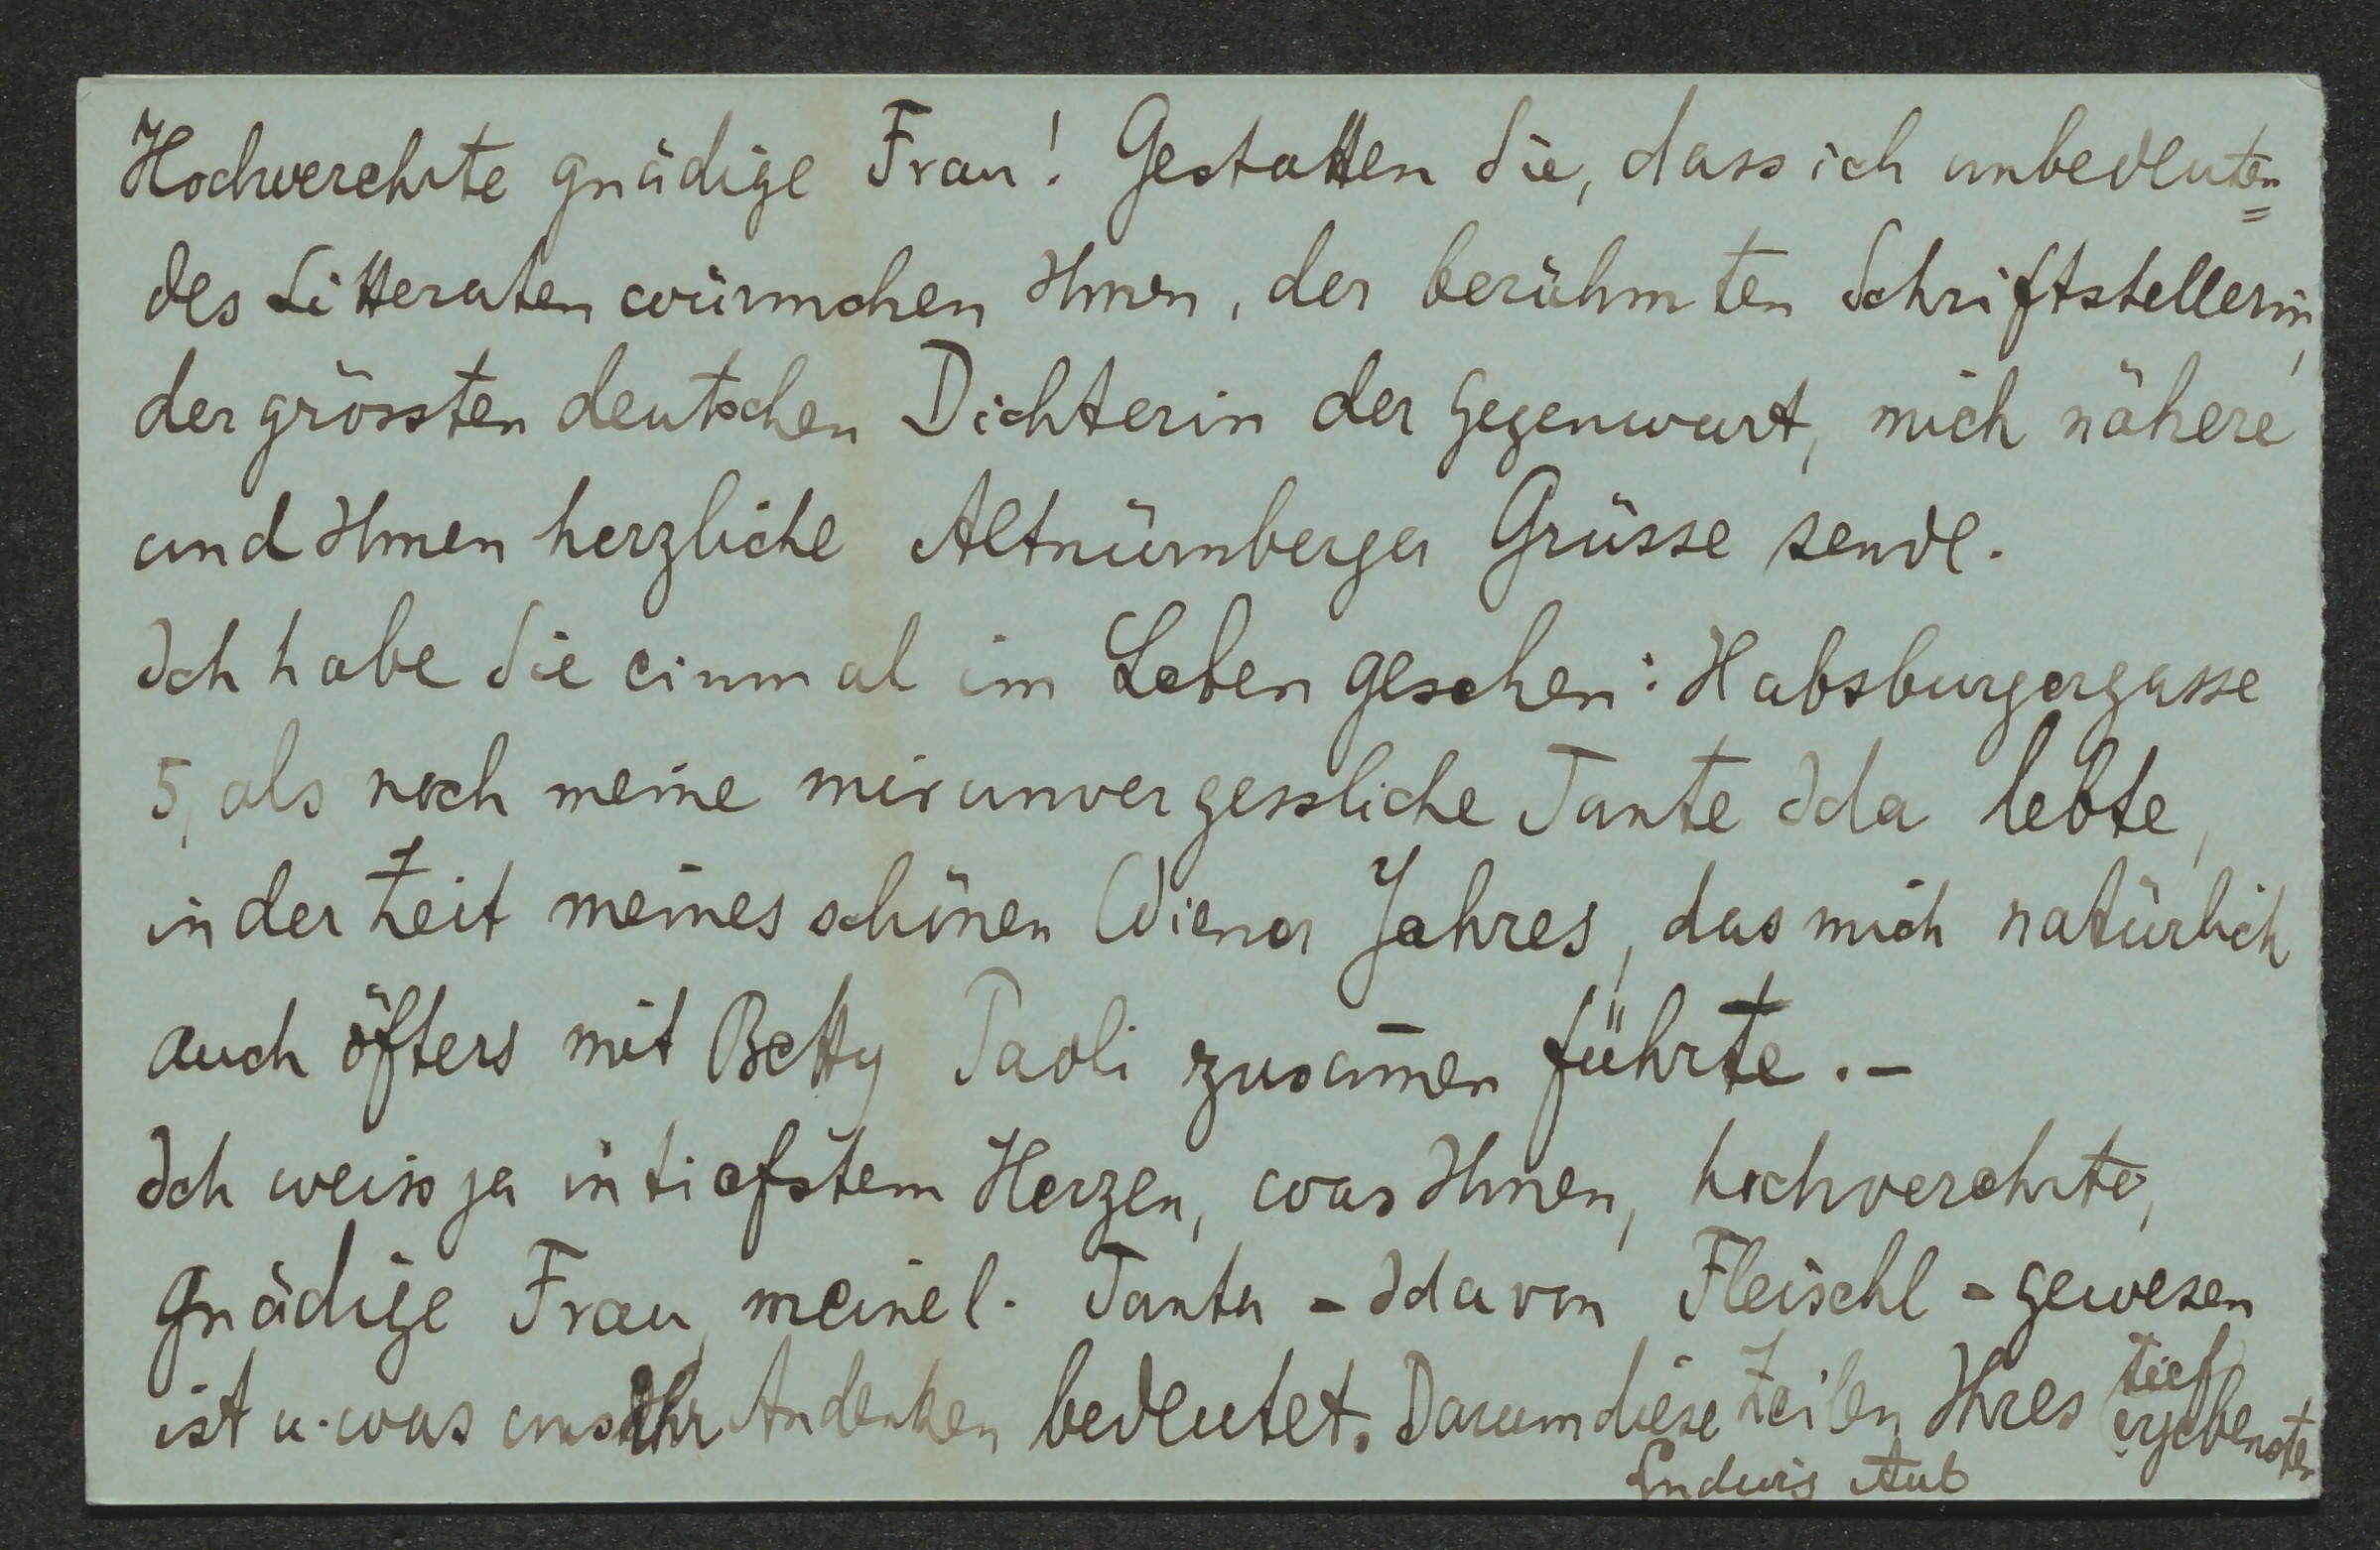 Hochverehrte gnädige Frau! Gestatten Sie, dass ich unbedeuten=
des Litteratenwürmchen Ihnen, der berühmten Schriftstellerin,
der grössten deutschen Dichterin der Gegenwart, mich nähere
und Ihnen herzliche Altnürnberger Grüsse sende.
Ich habe Sie einmal im Leben gesehen: Habsburgergasse
5, als noch meine mir unvergessliche Tante Ida lebte,
in der Zeit meines schönen Wiener Jahres, das mich natürlich
auch öfters mit Betty Paoli zusam̄en führte.-
Ich weiss ja in tiefstem Herzen, was Ihnen, hochverehrte,
gnädige Frau, meine l. Tante - Ida von Fleischl - gewesen
ist u. was uns Ihr Andenken bedeutet. Darum diese Zeilen Ihres tief
ergebensten
Ludwig Aub